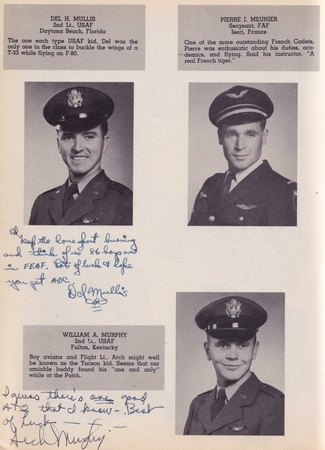 DEL H. MULLIS
2nd Lt., USAF
Daytona Beach, Florida
The one each type USAF kid. Del was the
only one in the class to buckle the wings of a
T-33 while flying an F-80.
PIERRE J. MEUNIER
Sergeant, FAF
Iseri, France
One of the more outstanding French Cadets.
Pierre was enthusiastic about his duties, aca-
demics, and flying. Said his instructor. "A
real French tiger."
keep the home front burning
and think of us 86 boys out
in FEAF. Lots of luck & hope
you get ADC.
Del Mullis
WILLIAM A. MURPHY
2nd Lt., USAF
Fulton, Kentucky
Boy aviator and Flight Lt., Arch might well
be known as the Tucson kid. Seems that our
amiable buddy found his "one and only"
while at the Patch.
I guess there's one good
that I know - Best
of Luck -
Arch Murphy -